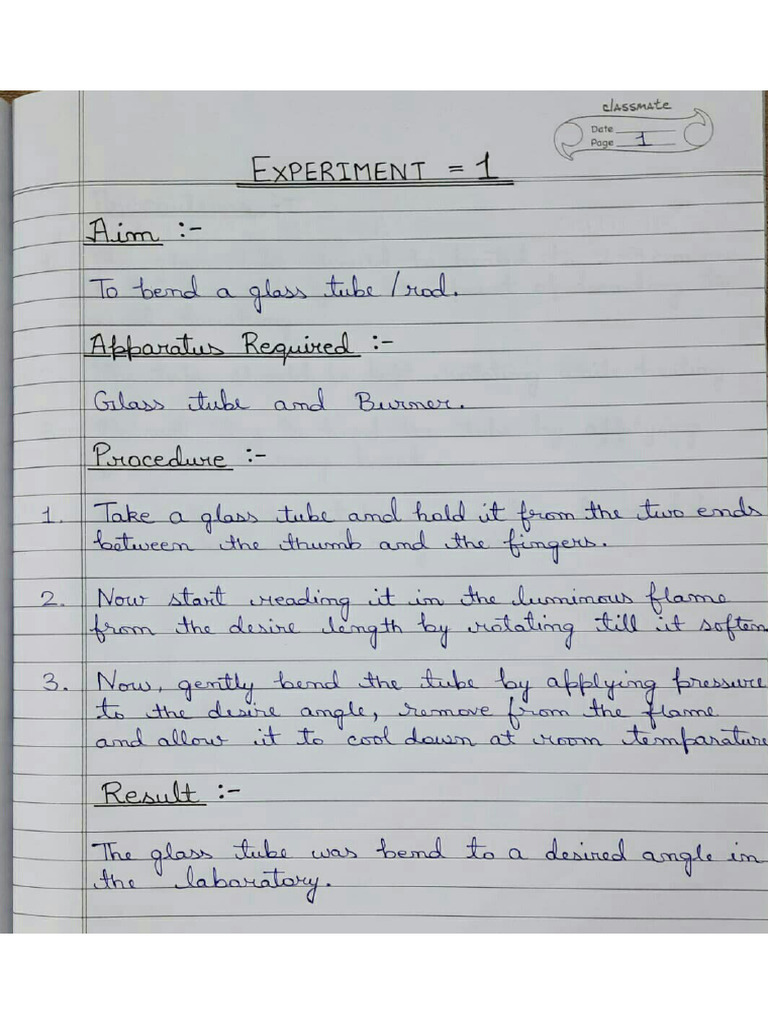 classmate
Date
Page 1
EXPERIMENT = 1
Aim :-
To bend a glass tube / rod.
Apparatus Required :-
Glass tube and Burner.
Procedure :-
1. Take a glass tube and hold it from the two ends
between the thumb and the fingers.
2. Now start reading it in the luminous flame
from the desire length by rotating till it soften
3. Now, gently bend the tube by applying pressure
to the desire angle, remove from the flame
and allow it to cool down at room temparature
Result :-
The glass tube was bend to a desired angle in
the labaratory.